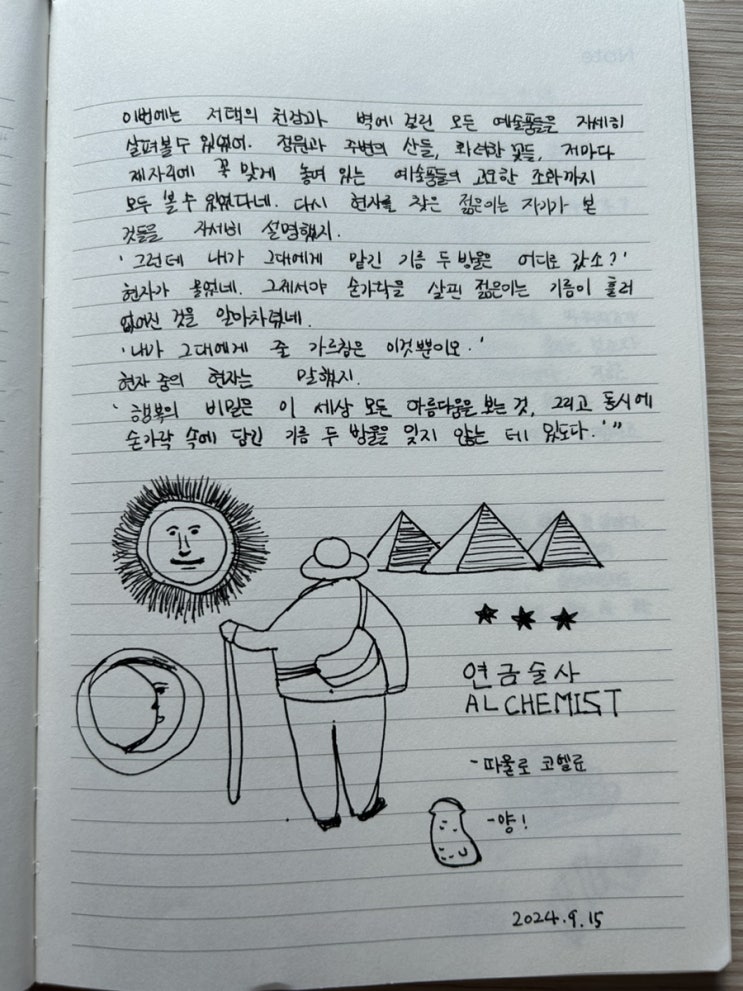 이번에는 저택의 천장과 벽에 걸린 모든 예술품들을 자세히
살펴볼 수 있었어. 정원과 주변의 산들, 화려한 꽃들, 저마다
제자리에 꼭 맞게 놓여 있는 예술품들의 고요한 조화까지
모두 볼 수 있었다네. 다시 현자를 찾은 젊은이는 자기가 본
것들을 자세히 설명했지.
'그런데 내가 그대에게 맡긴 기름 두 방울은 어디로 갔소?'
현자가 물었네. 그제서야 숟가락을 살핀 젊은이는 기름이 흘러
없어진 것을 알아차렸네.
'내가 그대에게 줄 가르침은 이것뿐이오.'
현자 중의 현자는 말했지.
'행복의 비밀은 이 세상 모든 아름다움을 보는 것, 그리고 동시에
숟가락 속에 담긴 기름 두 방울을 잊지 않는 데 있도다.'"
연금술사
ALCHEMIST
-파울로 코엘료
-양!
2024.9.15